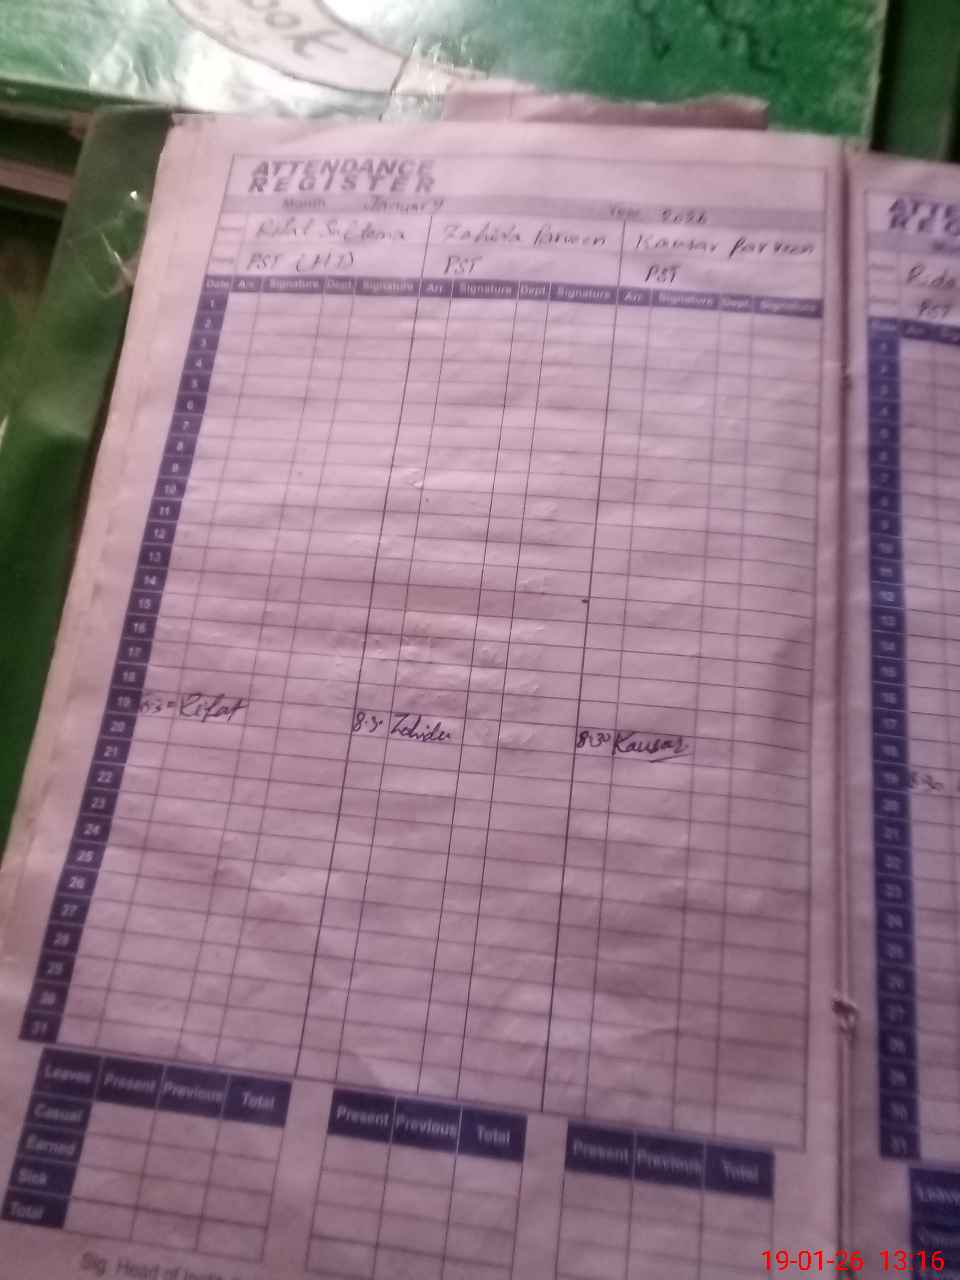 BOOK
ATTENDANCE
REGISTER
Month January Year 2026
Rifat Sultana Zahida Parveen Kausar Parveen
PST (HT) PST PST
Date Arr. Signature Dept. Signature Arr. Signature Dept. Signature Arr. Signature Dept. Signature
1
2
3
4
5
6
7
8
9
10
11
12
13
14
15
16
17
18
19 8:30 Rifat 8:30 Zahida 8:30 Kausar
20
21
22
23
24
25
26
27
28
29
30
31
Leaves Present Previous Total Present Previous Total Present Previous Total
Casual
Earned
Sick
Total
Sig. Head of
ATTE
REG
PST
1
2
3
4
5
6
7
8
9
10
11
12
13
14
15
16
17
18
19 8:30
20
21
22
23
24
25
26
27
28
29
30
31
Leave
19-01-26 13:16